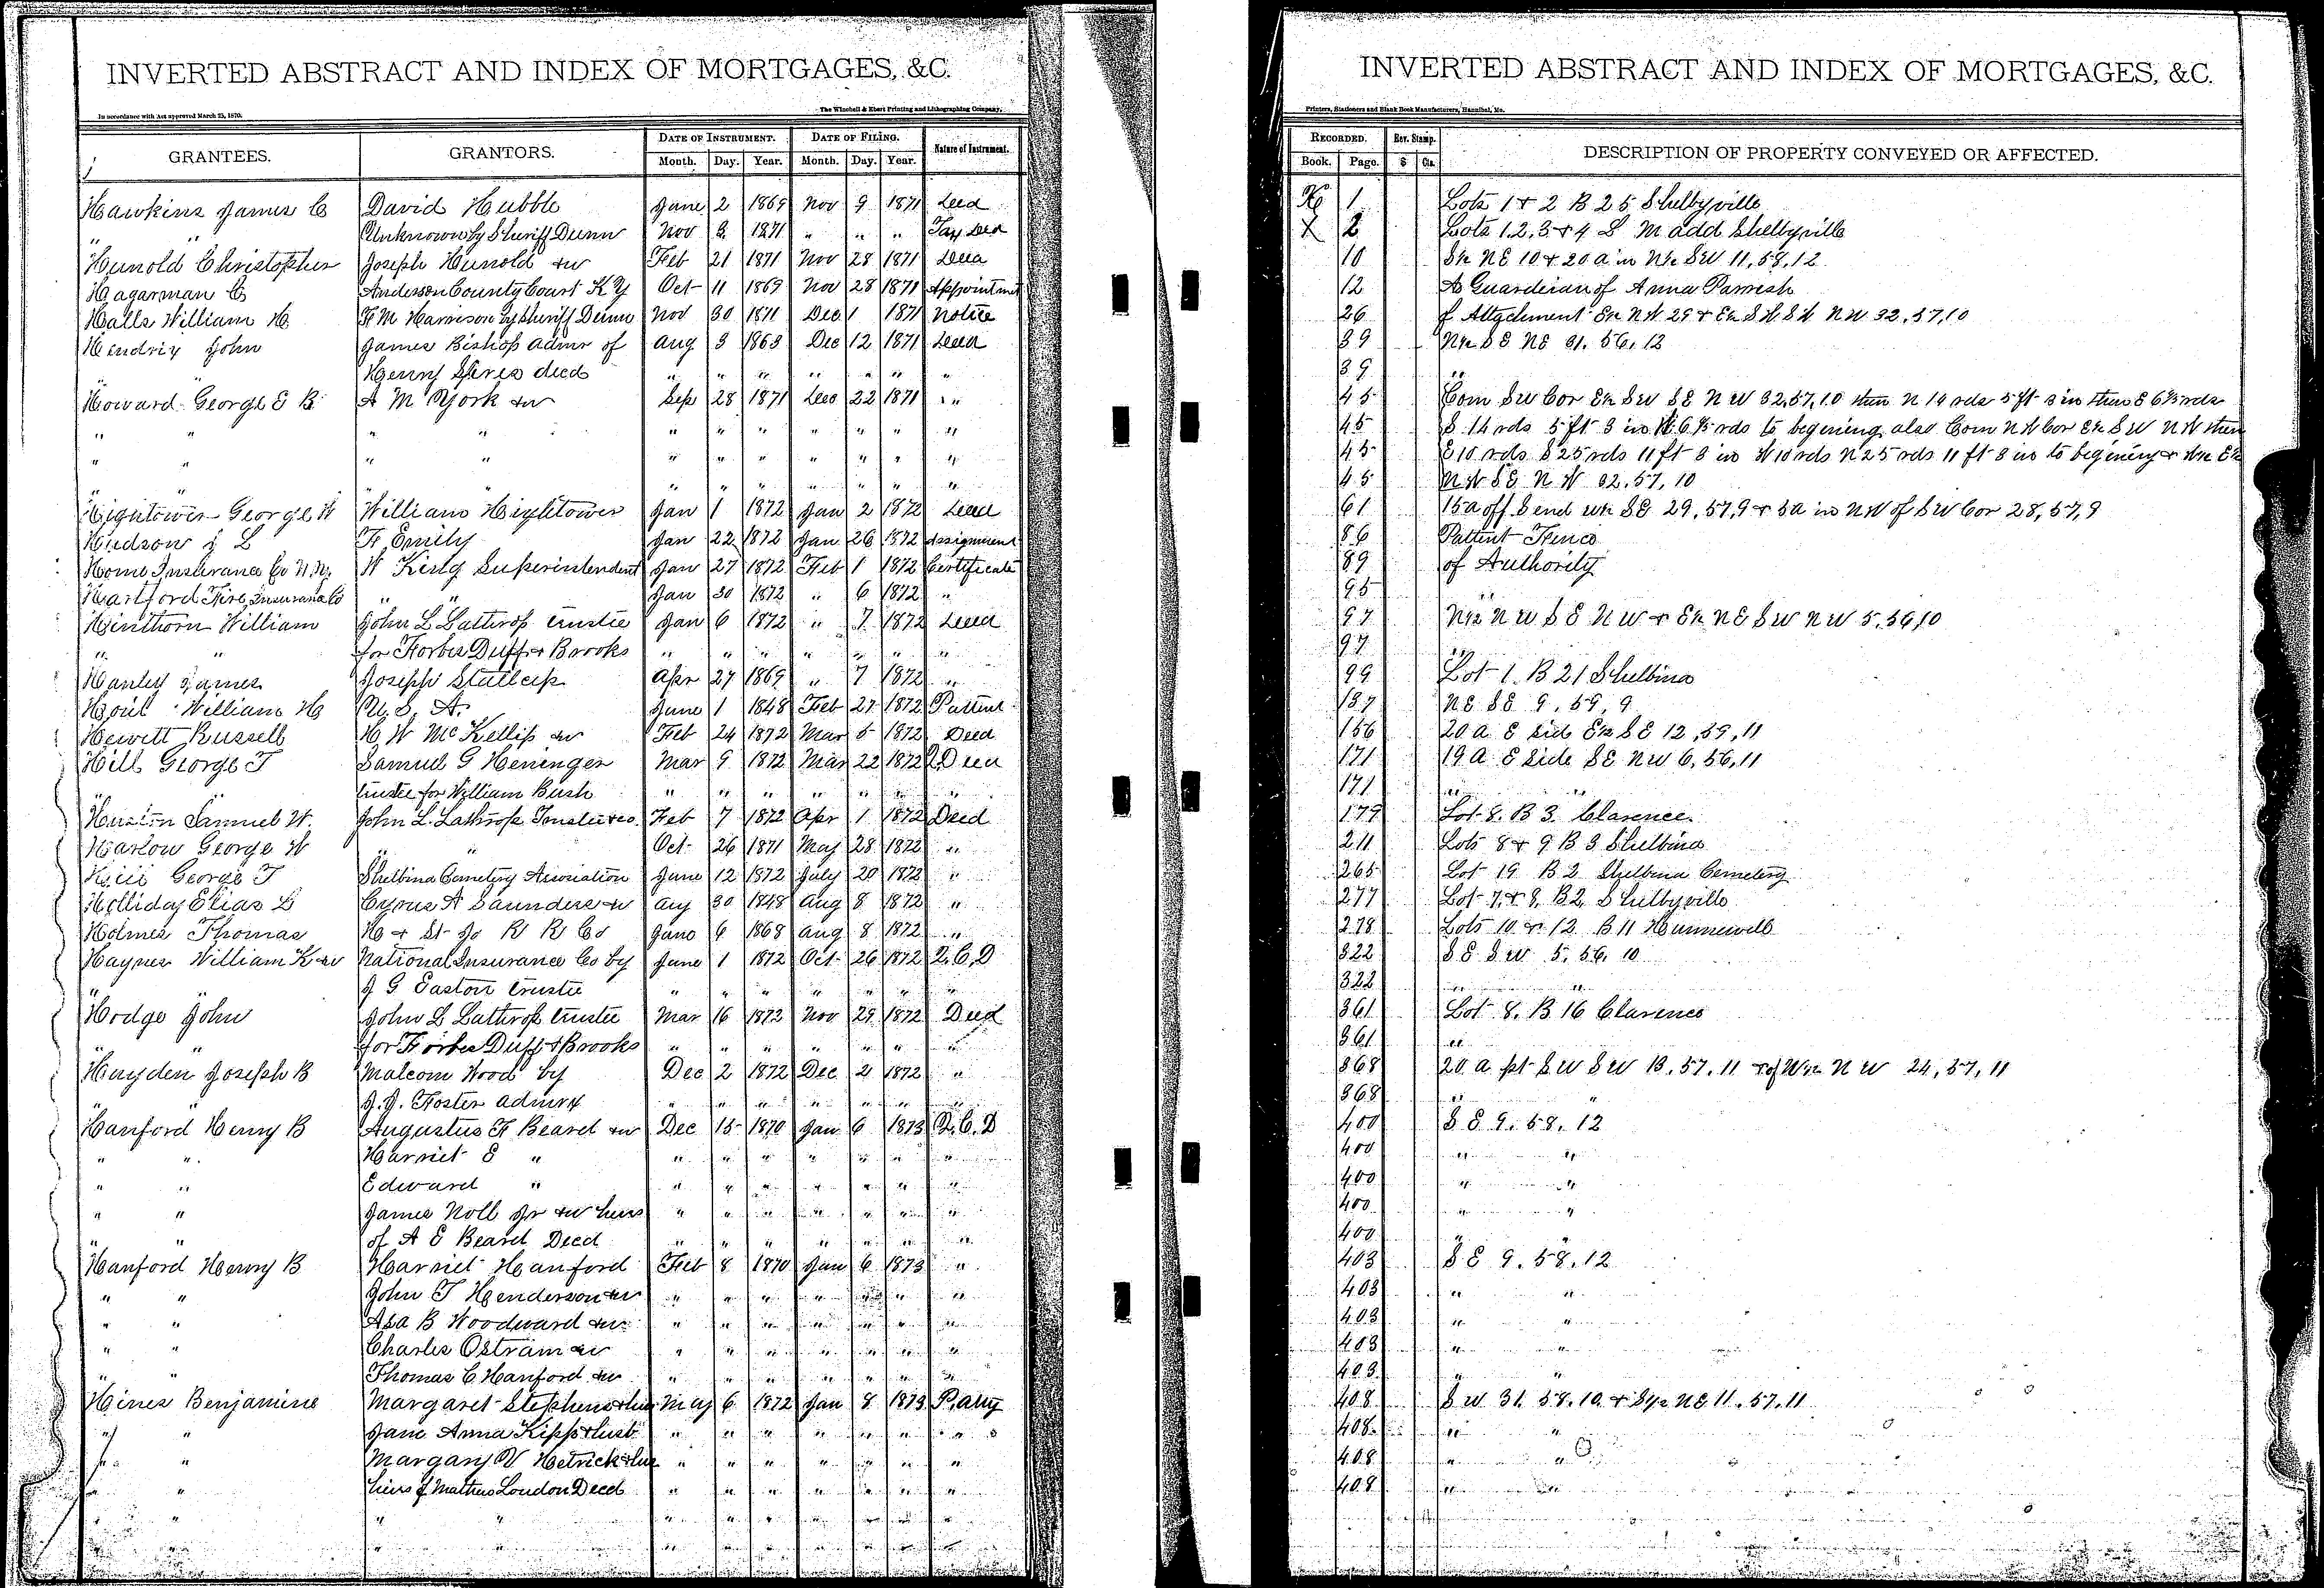 INVERTED ABSTRACT AND INDEX OF MORTGAGES, &C.
In accordance with Act approved March 25, 1870.
The Winchell & Ebert Printing and Lithographing Company,
GRANTEES. GRANTORS. DATE OF INSTRUMENT. DATE OF FILING. Nature of Instrument.
Month. Day. Year. Month. Day. Year.
Hawkins James C David Hubble June 2 1869 Nov 9 1871 Deed
" " Unknown by Sheriff Dunn Nov 3 1871 " " " Tax Deed
Hunold Christopher Joseph Hunold &w Feb 21 1871 Nov 28 1871 Deed
Hagarman C Anderson County Court KY Oct 11 1869 Nov 28 1871 Appointmet
Halls William H F M Harrison by Sheriff Dunn Nov 30 1871 Dec 1 1871 Notice
Hendrix John James Bishop admr of Aug 3 1863 Dec 12 1871 Deed
" Henry Spires decd " " " " " " "
Howard George E B A M York &w Sep 28 1871 Dec 22 1871 "
" " " " " " " " " " "
" " " " " " " " " " "
" " " " " " " " " " "
Hightower George W William Hightower Jan 1 1872 Jan 2 1872 Deed
Hudson J L F Emily Jan 22 1872 Jan 26 1872 Assignment
Home Insurance Co N.Y. W King Superintendent Jan 27 1872 Feb 1 1872 Certificate
Hartford Fire Insurance Co " " Jan 30 1872 " 6 1872 "
Hinthorn William John L Lathrop trustee Jan 6 1872 " 7 1872 Deed
" " for Forbes Duff & Brooks " " " " " " "
Hanley James Joseph Stutlcip Apr 27 1869 " 7 1872 "
William H U. S. A. June 1 1848 Feb 27 1872 Pattent
Hewitt Russell H W McKellip &w Feb 24 1872 Mar 5 1872 Deed
Hill George T Samuel G Heninger Mar 9 1872 Mar 22 1872 Deed
" trustee for William Bush " " " " " " "
Huston Samuel W. John L. Lathrop Trustee &co. Feb 7 1872 Apr 1 1872 Deed
Harlow George W " " Oct 26 1871 May 28 1872 "
George T Shelbina Cemetery Association June 12 1872 July 20 1872 "
Holliday Elias L Cyrus A Saunders &w Aug 30 1848 Aug 8 1872 "
Holmes Thomas H & St Jo R R Co June 6 1868 Aug 8 1872 "
Haynes William K &w National Insurance Co by June 1 1872 Oct 26 1872 Q.C.D
" J G Easton trustee " " " " " " "
Hodge John John L Lathrop trustee Mar 16 1872 Nov 29 1872 Deed
" for Forbes Duff & Brooks " " " " " " "
Hayden Joseph B Malcom Wood by Dec 2 1872 Dec 21 1872 "
J. J. Foster admrx " " " " " " "
Hanford Henry B Augustus F Beard &w Dec 15 1870 Jan 6 1873 Q.C.D
" " Harriet E " " " " " " " "
" " Edward " " " " " " " "
" " James Noll Jr &w heirs " " " " " " "
" " of A E Beard Decd " " " " " " "
Hanford Henry B Harriet Hanford Feb 8 1870 Jan 6 1873 "
" " John T Henderson &w " " " " " " "
" " Asa B Woodward &w " " " " " " "
" " Charles Ostram &w " " " " " " "
" " Thomas C Hanford &w " " " " " " "
Hines Benjamine Margaret Stephens & hus May 6 1872 Jan 8 1873 P. Atty
" " Jane Anna Kipp & husb " " " " " " "
" " Margary V Hetrick & hus " " " " " " "
" " heirs of Mathew London Decd " " " " " " "
" " " " " " " " " " "
" " " " " " " " " " "
INVERTED ABSTRACT AND INDEX OF MORTGAGES, &C.
Printers, Stationers and Blank Book Manufacturers, Hannibal, Mo.
RECORDED. Rev. Stamp. DESCRIPTION OF PROPERTY CONVEYED OR AFFECTED.
Book. Page. $ Cts.
1 Lots 1 & 2 B 25 Shelbyville
X 2 Lots 1.2.3 & 4 L M add Shelbyville
10 NE 10 & 20 a in SW 11, 58, 12
12 As Guardeian of Anna Parrish
26 of Attachment E½ NW 29 & E½ SW SW NW 32, 57, 10
39 N½ SE NE 31. 56. 12
39 "
45 Com SW Cor E½ SW SE NW 32, 57, 10 then N 14 rds 5 ft 3 in then E 6⅔ rds
45 S 14 rds 5 ft 3 in W 6⅔ rds to begening also Com NW Cor E½ SW NW then
45 E 10 rds S 25 rds 11 ft 3 in W 10 rds N 25 rds 11 ft 3 in to begining & W½ E½
45 NW SE NW 32. 57, 10
61 15 a off S end W½ SE 29, 57, 9 & 5 a in NW of SW Cor 28, 57, 9
86 Pattent Fence
89 of Authority
95 "
97 N½ NW SE NW & E½ NE SW NW 5, 56, 10
97 "
99 Lot 1. B 21 Shelbina
137 NE SE 9, 59, 9
156 20 a E sid E½ SE 12, 59, 11
171 19 a E Side SE NW 6, 56, 11
171 " "
179 Lot 8. B 3. Clarence.
211 Lots 8 & 9 B 3 Shelbina
265 Lot 19 B 2 Shelbina Cemetery
277 Lot 7. & 8. B2, Shelbyville
278 Lots 10 & 12 B 11 Hunnewell
322 SE SW 5. 56. 10
322 " "
361 Lot 8. B 16 Clarence
361 "
368 20 a pt SW SW 13. 57. 11 & of W½ NW 24, 57, 11
368 " "
400 SE 9. 58. 12
400 " "
400 " "
400 " "
400 "
403 SE 9. 58. 12
403 " "
403 " "
403 " "
403 " "
408 SW 31. 58. 10. & S½ NE 11. 57. 11
408 " "
408 " "
408 " "